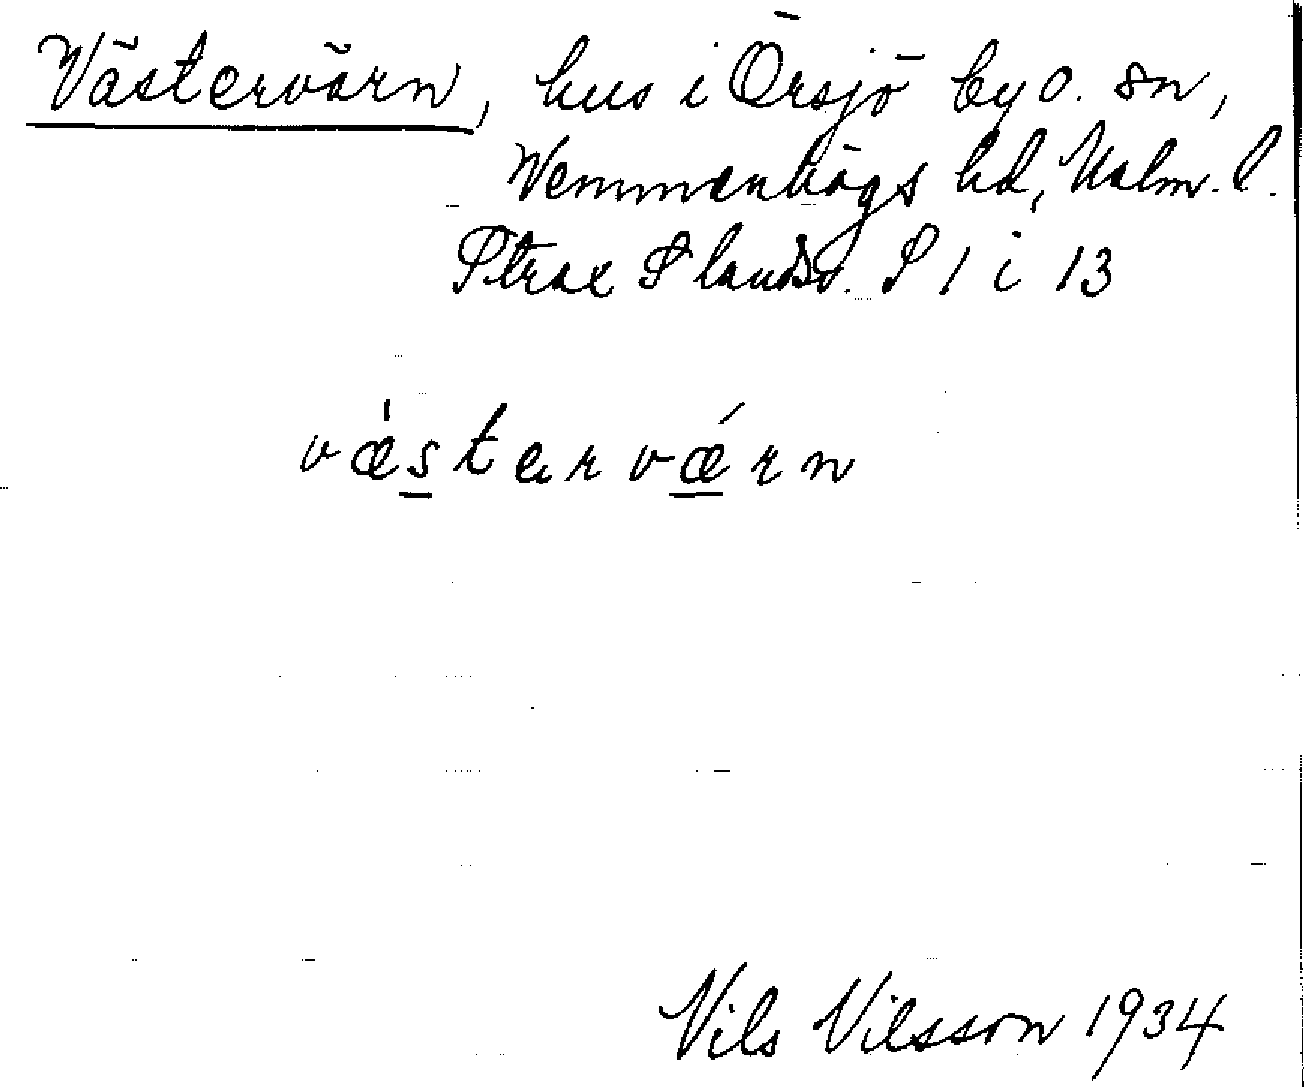 Västervärn, hus i Örsjö by o. sn,
Vemmenhögs hd, Malm. l.
Strax S landsv. S 1 i 13
væsterværn
Nils Nilsson 1934